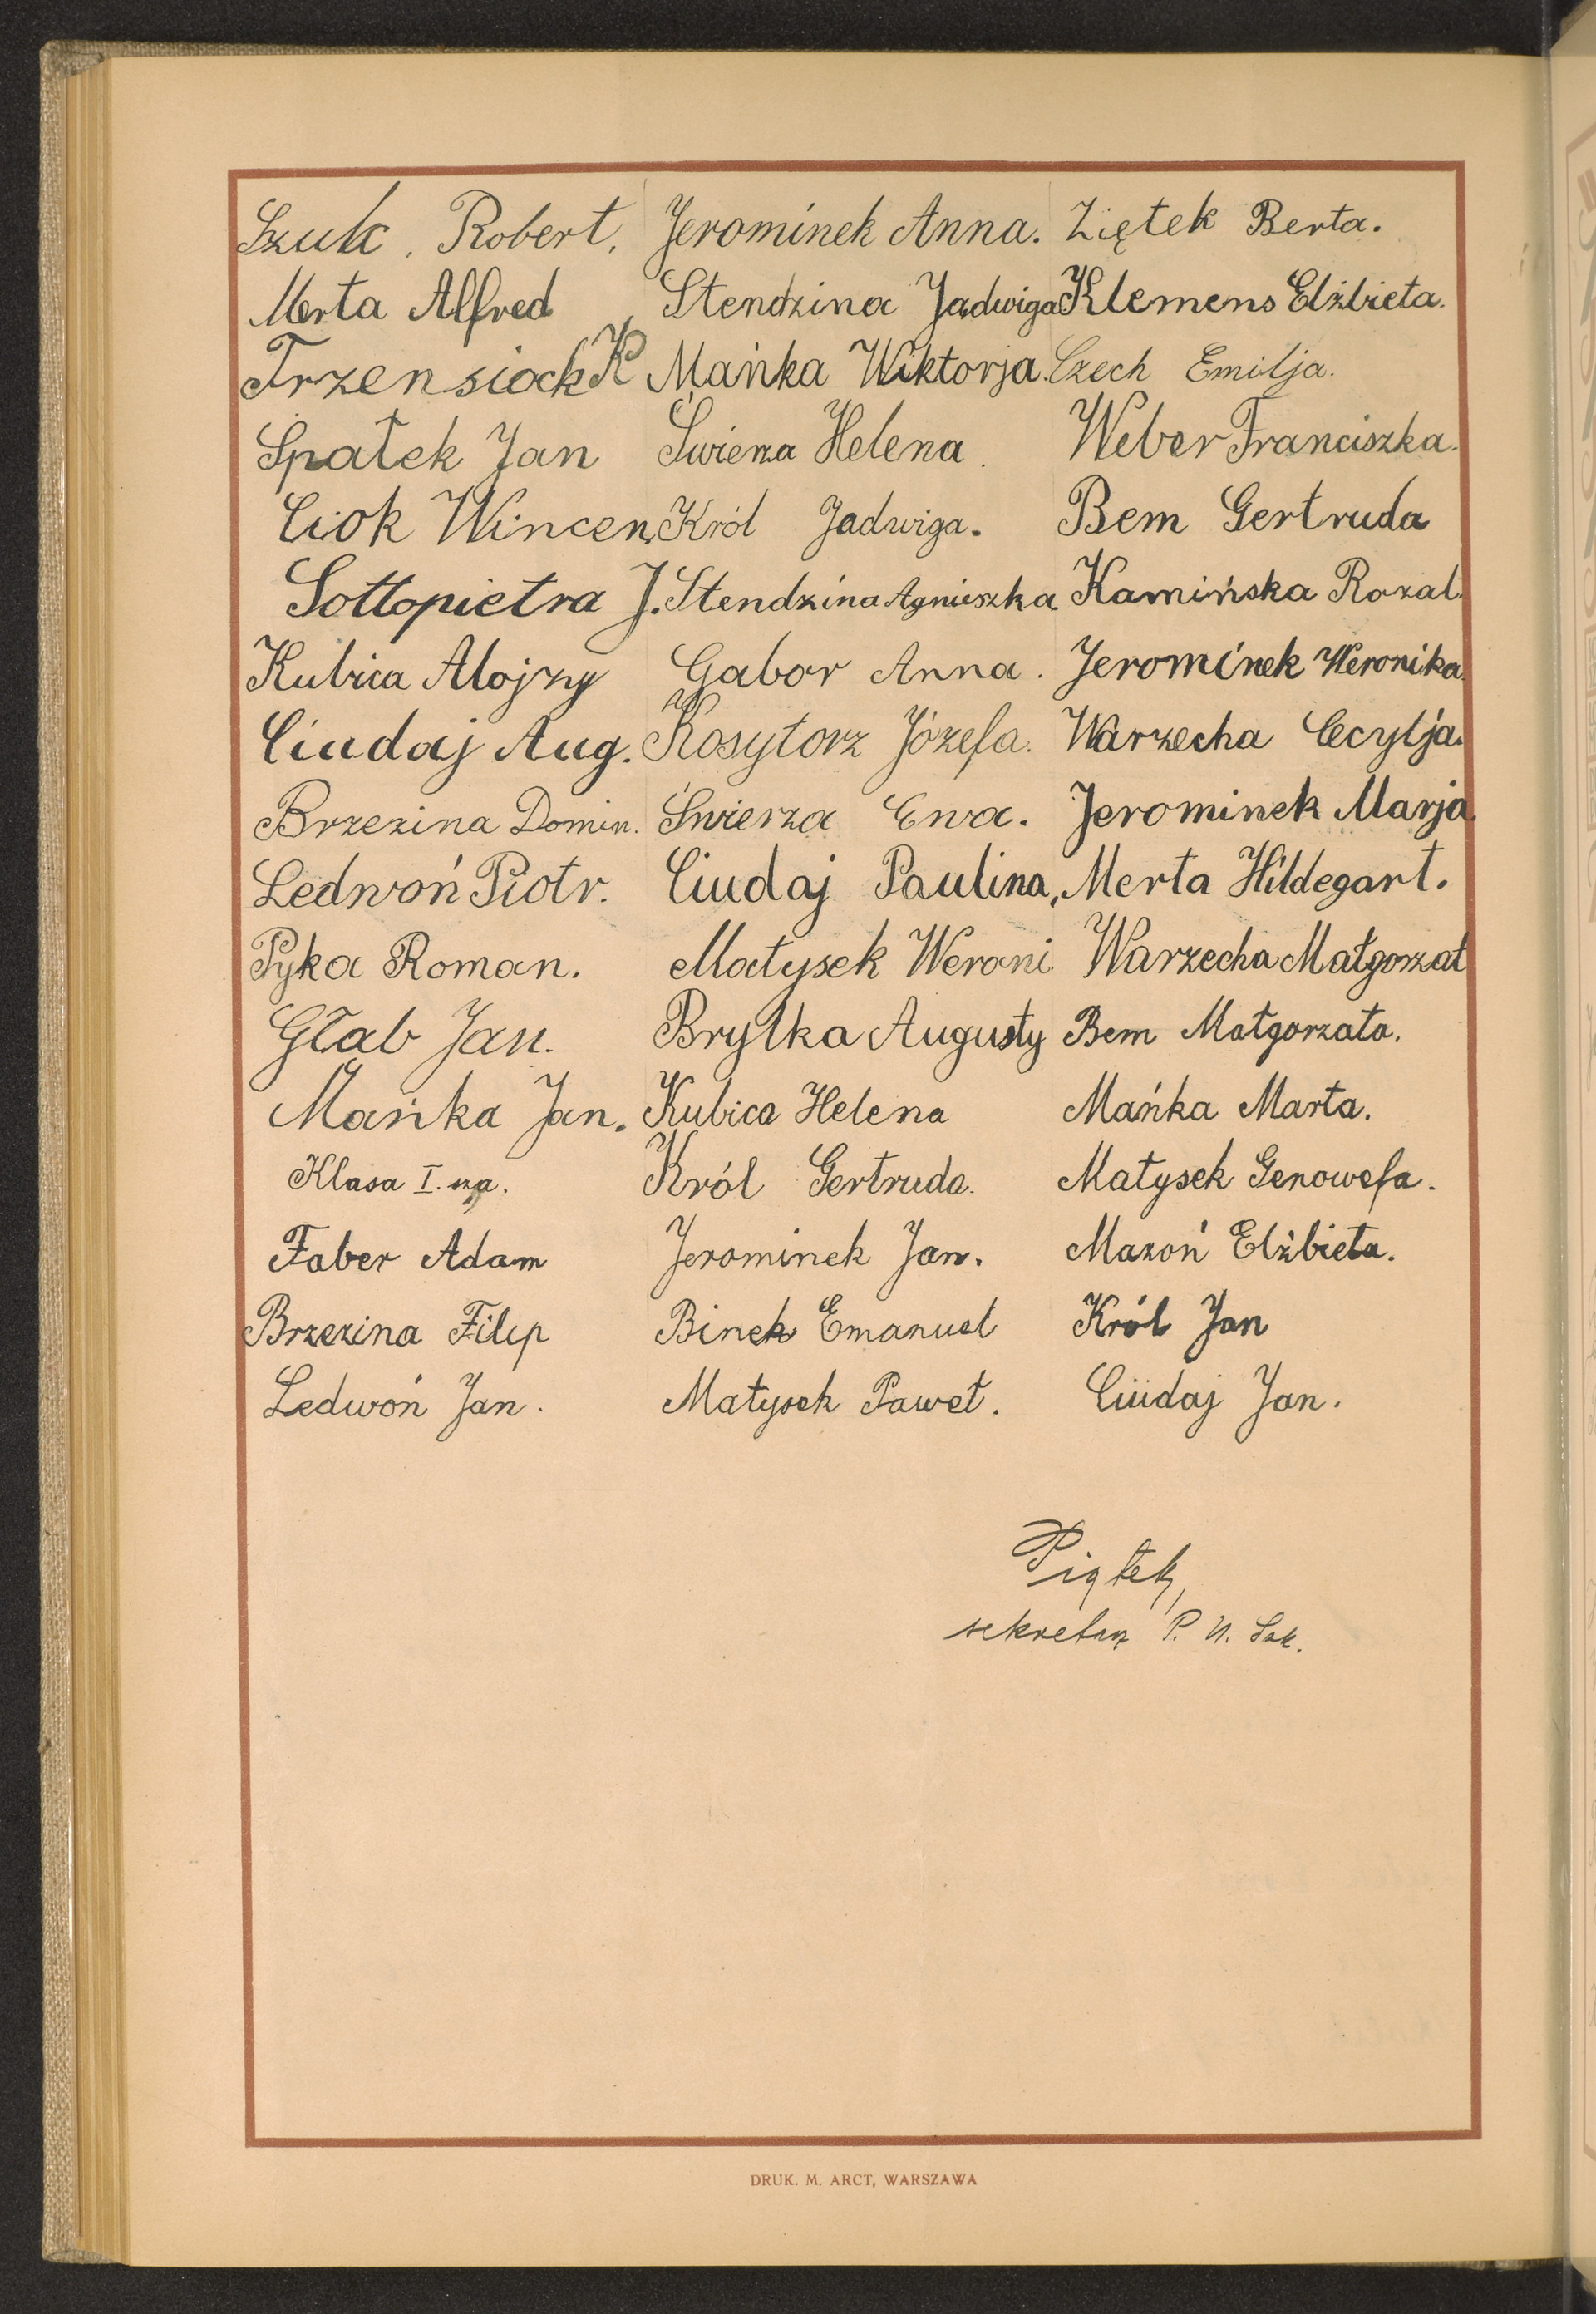 Szulc, Robert. Jerominek Anna. Ziętek Berta.
Merta Alfred Stendzina Jadwiga Klemens Elżbieta.
Trzensiock K Mańka Wiktorja. Czech Emilja.
Spałek Jan Świerza Helena. Weber Franciszka.
Ciok Wincen. Król Jadwiga. Bem Gertruda
Sottopietra J. Stendzina Agnieszka Kamińska Rozal.
Kubica Alojzy Gabor Anna. Jerominek Weronika.
Ciudaj Aug. Kosytorz Józefa. Warzecha Cecylja.
Brzezina Domin. Świerza Ewa. Jerominek Marja.
Ledwoń Piotr. Ciudaj Paulina, Merta Hildegart.
Pyka Roman. Matysek Weroni Warzecha Małgorzat
Głab Jan. Brylka Augusty Bem Małgorzata.
Mańka Jan. Kubica Helena Mańka Marta.
Klasa I. sza. Król Gertruda. Matysek Genowefa.
Faber Adam Jerominek Jan. Mazoń Elżbieta.
Brzezina Filip Binek Emanuel Król Jan
Ledwoń Jan. Matysek Paweł. Ciudaj Jan.
Piątek,
sekretarz P. U. Szk.
DRUK. M. ARCT, WARSZAWA